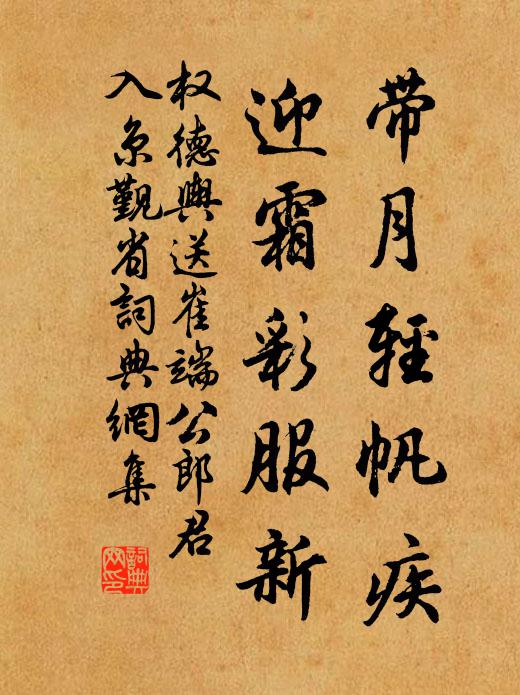 带月轻帆疾
迎霜彩服新
权德舆送崔端公郎君
入京觐省词典網集
詞典網印